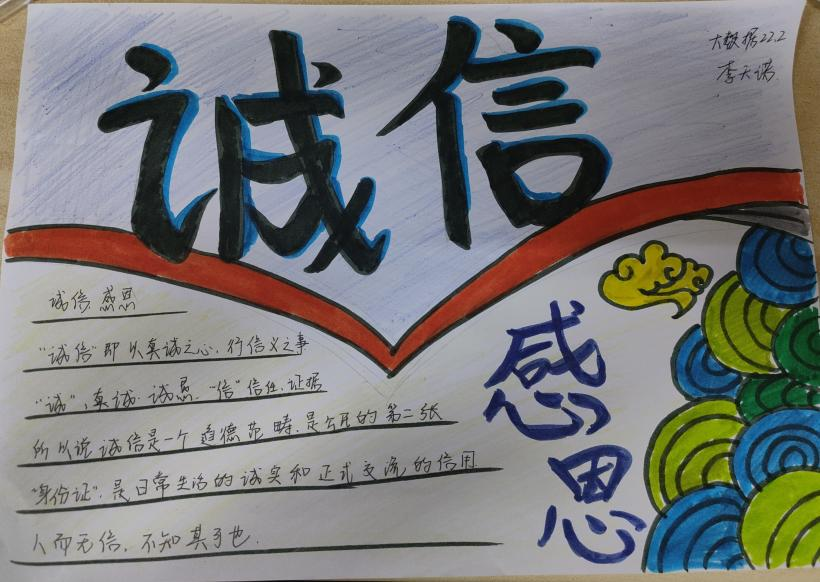 诚信
大数据22.2
李天诺
诚信 感恩
"诚信"即以真诚之心,行信义之事
"诚",真诚.诚恳."信"信任.证据
所以说诚信是一个道德范畴.是公民的第二张
"身份证".是日常生活的诚实和正式交流的信用
人而无信,不知其可也.
感恩